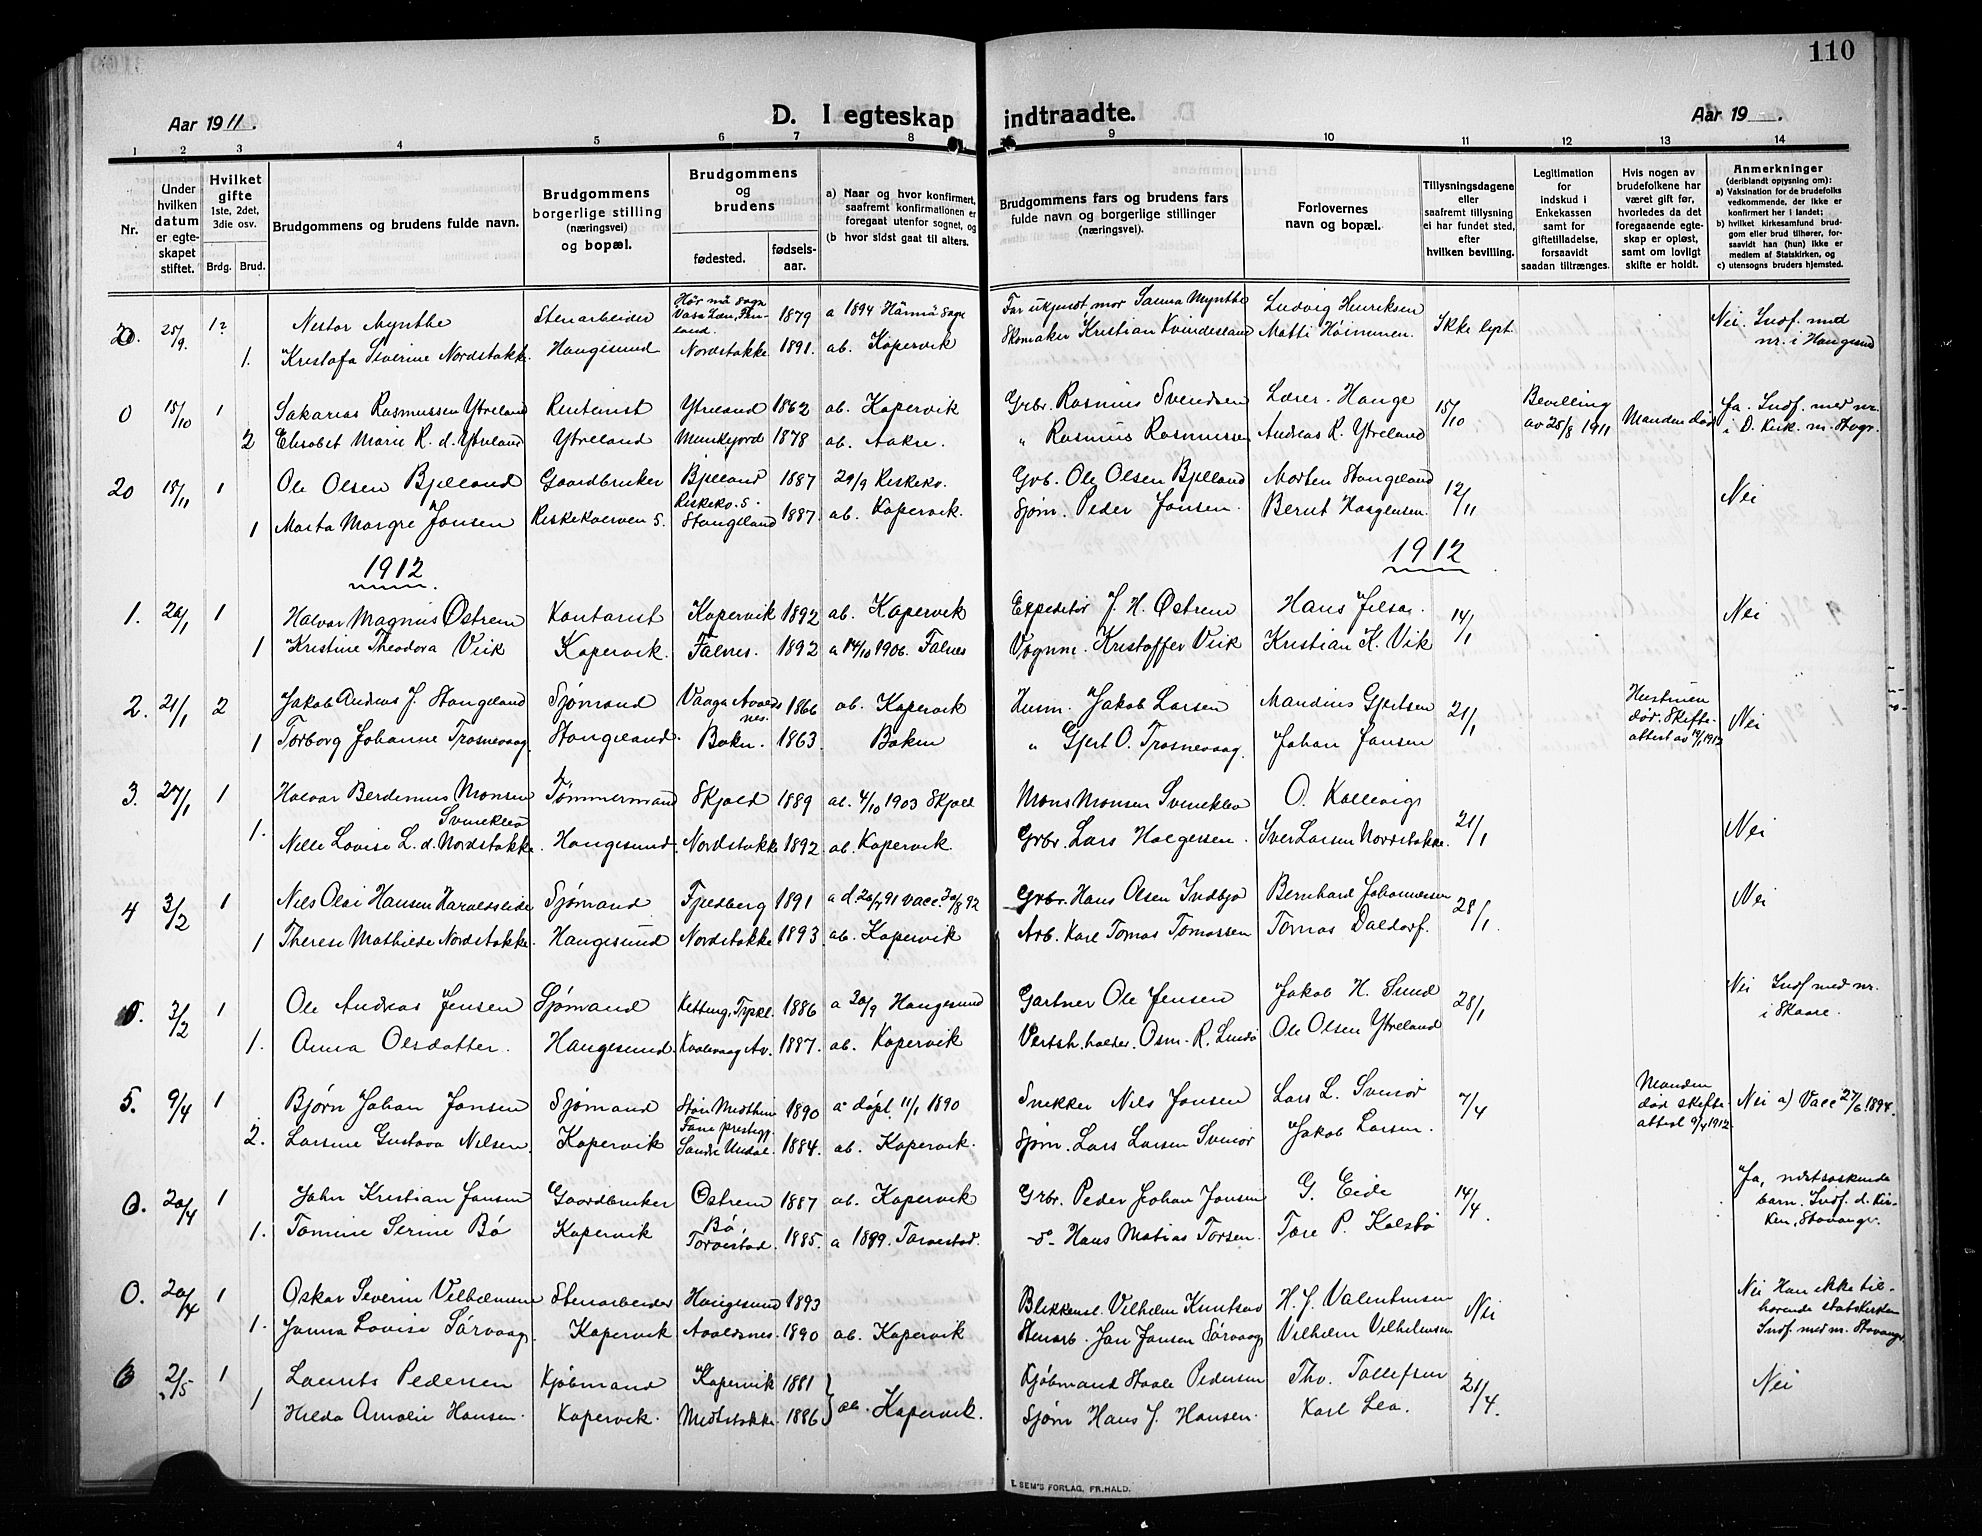 110
Aar 1911.
D. I egteskap indtraadte.
Aar 19 .
1 2 3 4 5 6 7 8 9 10 11 12 13 14
Nr.
Under hvilken datum er egteskapet stiftet.
Hvilket gifte 1ste, 2det, 3die osv.
Brdg. Brud.
Brudgommens og brudens fulde navn.
Brudgommens borgerlige stilling (næringsvei) og bopæl.
Brudgommens og brudens
fødested. fødselsaar.
a) Naar og hvor konfirmert, saafremt konfirmationen er foregaat utenfor sognet, og
(b hvor sidst gaat til alters.
Brudgommens fars og brudens fars fulde navn og borgerlige stillinger (næringsvei).
Forlovernes navn og bopæl.
Tillysningsdagene eller saafremt tillysning ei har fundet sted, efter hvilken bevilling.
Legitimation for indskud i Enkekassen samt for giftetilladelse, forsaavidt saadan tiltrænges.
Hvis nogen av brudefolkene har været gift før, hvorledes da det foregaaende egteskap er opløst, samt om lovligt skifte er holdt.
Anmerkninger
(deriblandt oplysning om):
a) Vaksination for de brudefolks vedkommende, der ikke er konfirmert her i landet;
b) hvilket kirkesamfund brudgom eller brud tilhører, forsaavidt han (hun) ikke er medlem af Statskirken, og
c) utensogns bruders hjemsted.
25/9. 1? Nestor Mynthe Stenarbeider 1879 a 1894 Far ukjendt, mor Sanna Mynthe Ludvig Henriksen Ikke lyst Nei. Indf. med
1. Kristofa Severine Nordstokke Haugesund Nordstokke 1891. ab. Kopervik Skomaker Kristian Kvindesland Matti nr. i Haugesund
0 15/10 1 Sakarias Rasmussen Ytreland Rentenist Ytreland 1862 ab. Kopervik Grbr. Rasmus Svendsen Lærer Hauge 15/10 Bevilling av 25/8 1911 Manden død Ja. Indf. med nr.
2 Elisabet Marie R. d. Ytreland Ytreland Munkejord 1878 ab. Aakre. " Rasmus Rasmussen Andreas R. Ytreland i D. Kirk. m. Stvgr.
20 15/11 1 Ole Olsen Bjelland Gaardbruker Bjelland 1887 29/9 Riskekv. Grb. Ole Olsen Bjelland Morten Stangeland 12/11 Nei
1 Marta Margre Jansen Riskekverven S. Riskekv. S. Stangeland 1887. ab. Kopervik. Sjøm. Peder Jansen. Bernt Haagensen.
1912 1912
1. 26/1 1 Halvar Magnus Østrem Kontorist Kopervik 1892 ab. Kopervik Expeditør J. H. Østrem Hans Jelsa. 14/1 Nei
1 Kristine Theodora Vik Kopervik. Falnes. 1892 a 14/10 1906. Falnes Vognm. Kristoffer Vik Kristian K. Vik
2. 21/1 2 Jakob Andreas J. Stangeland Sjømand Vaaga Avaldsnes. 1866 ab. Kopervik Husm. Jakob Larsen Mandius Gjertsen 21/1 Hustruen død. Skifteattest av 19/1 1912 Nei
1 Torborg Johanne Trosnevaag. Stangeland Bokn. 1863. Bokn " Gjert O. Trosnevaag. Johan Jansen
3. 27/1 1 Halvar Berdinius Monsen Svineklev Tømmermand Skjold 1889 ab. 4/10 1903 Skjold Mons Monsen Svineklev O. Kallevig 21/1 Nei
1. Nelle Lovise L. d. Nordstokke. Haugesund. Nordstokke 1892. ab. Kopervik. Grbr. Lars Halgesen. Iver Larsen Nordstokke.
4 3/2 1 Nils Olai Hansen Haraldseide Sjømand Fjeldberg 1891 a d. 20/7 91 vacc. 30/8 92 Grbr. Hans Olsen Indbjo Bernhard Johannessen 28/1. Nei
1 Therese Mathilde Nordstokke. Haugesund Nordstokke 1893 ab. Kopervik Arb. Karl Tomas Tomassen Tomas Daldorf.
0. 3/2 1 Ole Andreas Jensen Sjømand Ketting, Tyskl. 1886 a 30/9 Haugesund Gartner Ole Jensen Jakob H. Sund 28/1 Nei Indf med nr. i Skaare.
1. Anna Olsdatter. Haugesund. Kvalevaag Av. 1887. ab. Kopervik Vertsh. holder. Osm. R. Ole Olsen Ytreland
5. 9/4 1 Bjørn Johan Jansen Sjømand 1890 a døpt 11/1 1890 Snekker Nils Jansen Lars L. 7/4 Manden død skifteattest 9/4 1912. Nei a) Vacc 27/6 1894.
2. Larsine Gustava Nilsen. Kopervik Søndre Undal. 1884. ab. Kopervik. Sjøm. Lars Larsen Jakob Larsen.
0. 20/4 1 John Kristian Jansen Gaardbruker Østrem 1887 ab. Kopervik Grbr. Peder Johan Jansen G. Eide 14/4. Ja, næstsøskendebarn. Indf. d. Kirken, Stavanger.
1. Tomine Serine Bø Kopervik Bø, Torvestad. 1885. a 1899. Torvestad. -"- Hans Matias Torsen. Tore P. Kolstø
0. 20/4 1 Oskar Severin Vilhelmsen Stenarbeider Haugesund 1893 Blikkensl. Vilhelm Knutsen H. J. Valentinsen Nei Nei Han ikke tilhørende statskirken Indf med nr. Stavanger
1. Janna Lovise Sørvaag. Kopervik Avaldsnes. 1890 ab. Kopervik Stenarb. Jan Jansen Sørvaag Vilhelm Vilhelmsen
6 2/5 1 Laurits Pedersen Kjøbmand Kopervik 1881 ab. Kopervik. Kjøbmand Staale Pedersen Tho. Tollefsen 21/4. Nei
1 Hilda Amalie Hansen. Kopervik. Medtstokke 1886 Sjøm Hans J. Hansen. Karl Lea.
E. SEM'S FORLAG, FR.HALD.